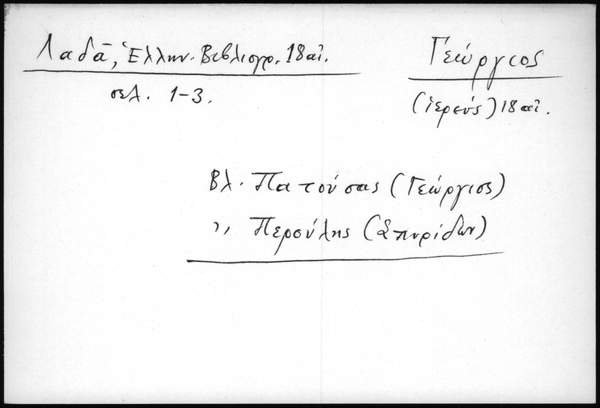 Λαδᾶ, Ἑλλην. Βιβλιογρ. 18 αἰ.
σελ. 1-3.
Γεώργιος
(ἱερεύς) 18 αἰ.
Βλ. Πατούσας (Γεώργιος)
,, Περούλης (Σπυρίδων)